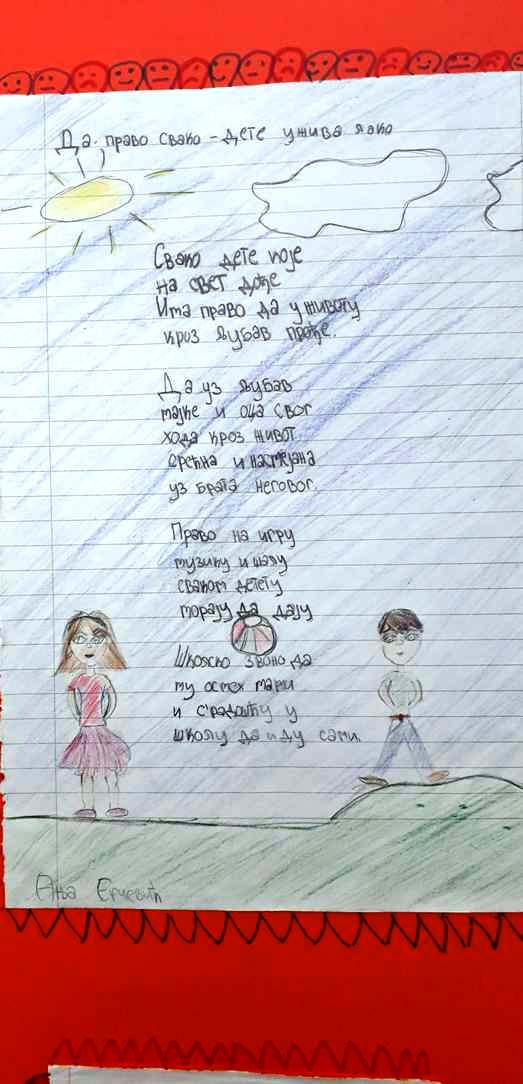 Да право свако - дете ужива јако
Свако дете које
на свет дође
Има право да у животу
кроз љубав прође.
Да уз љубав
мајке и оца свог
хода кроз живот
срећна и насмејана
уз брата његовог.
Право на игру
музику и шалу
сваком детету
морају да дају
Школско звоно да
му осмех мами
и с радошћу у
школу да иду сами.
Ања